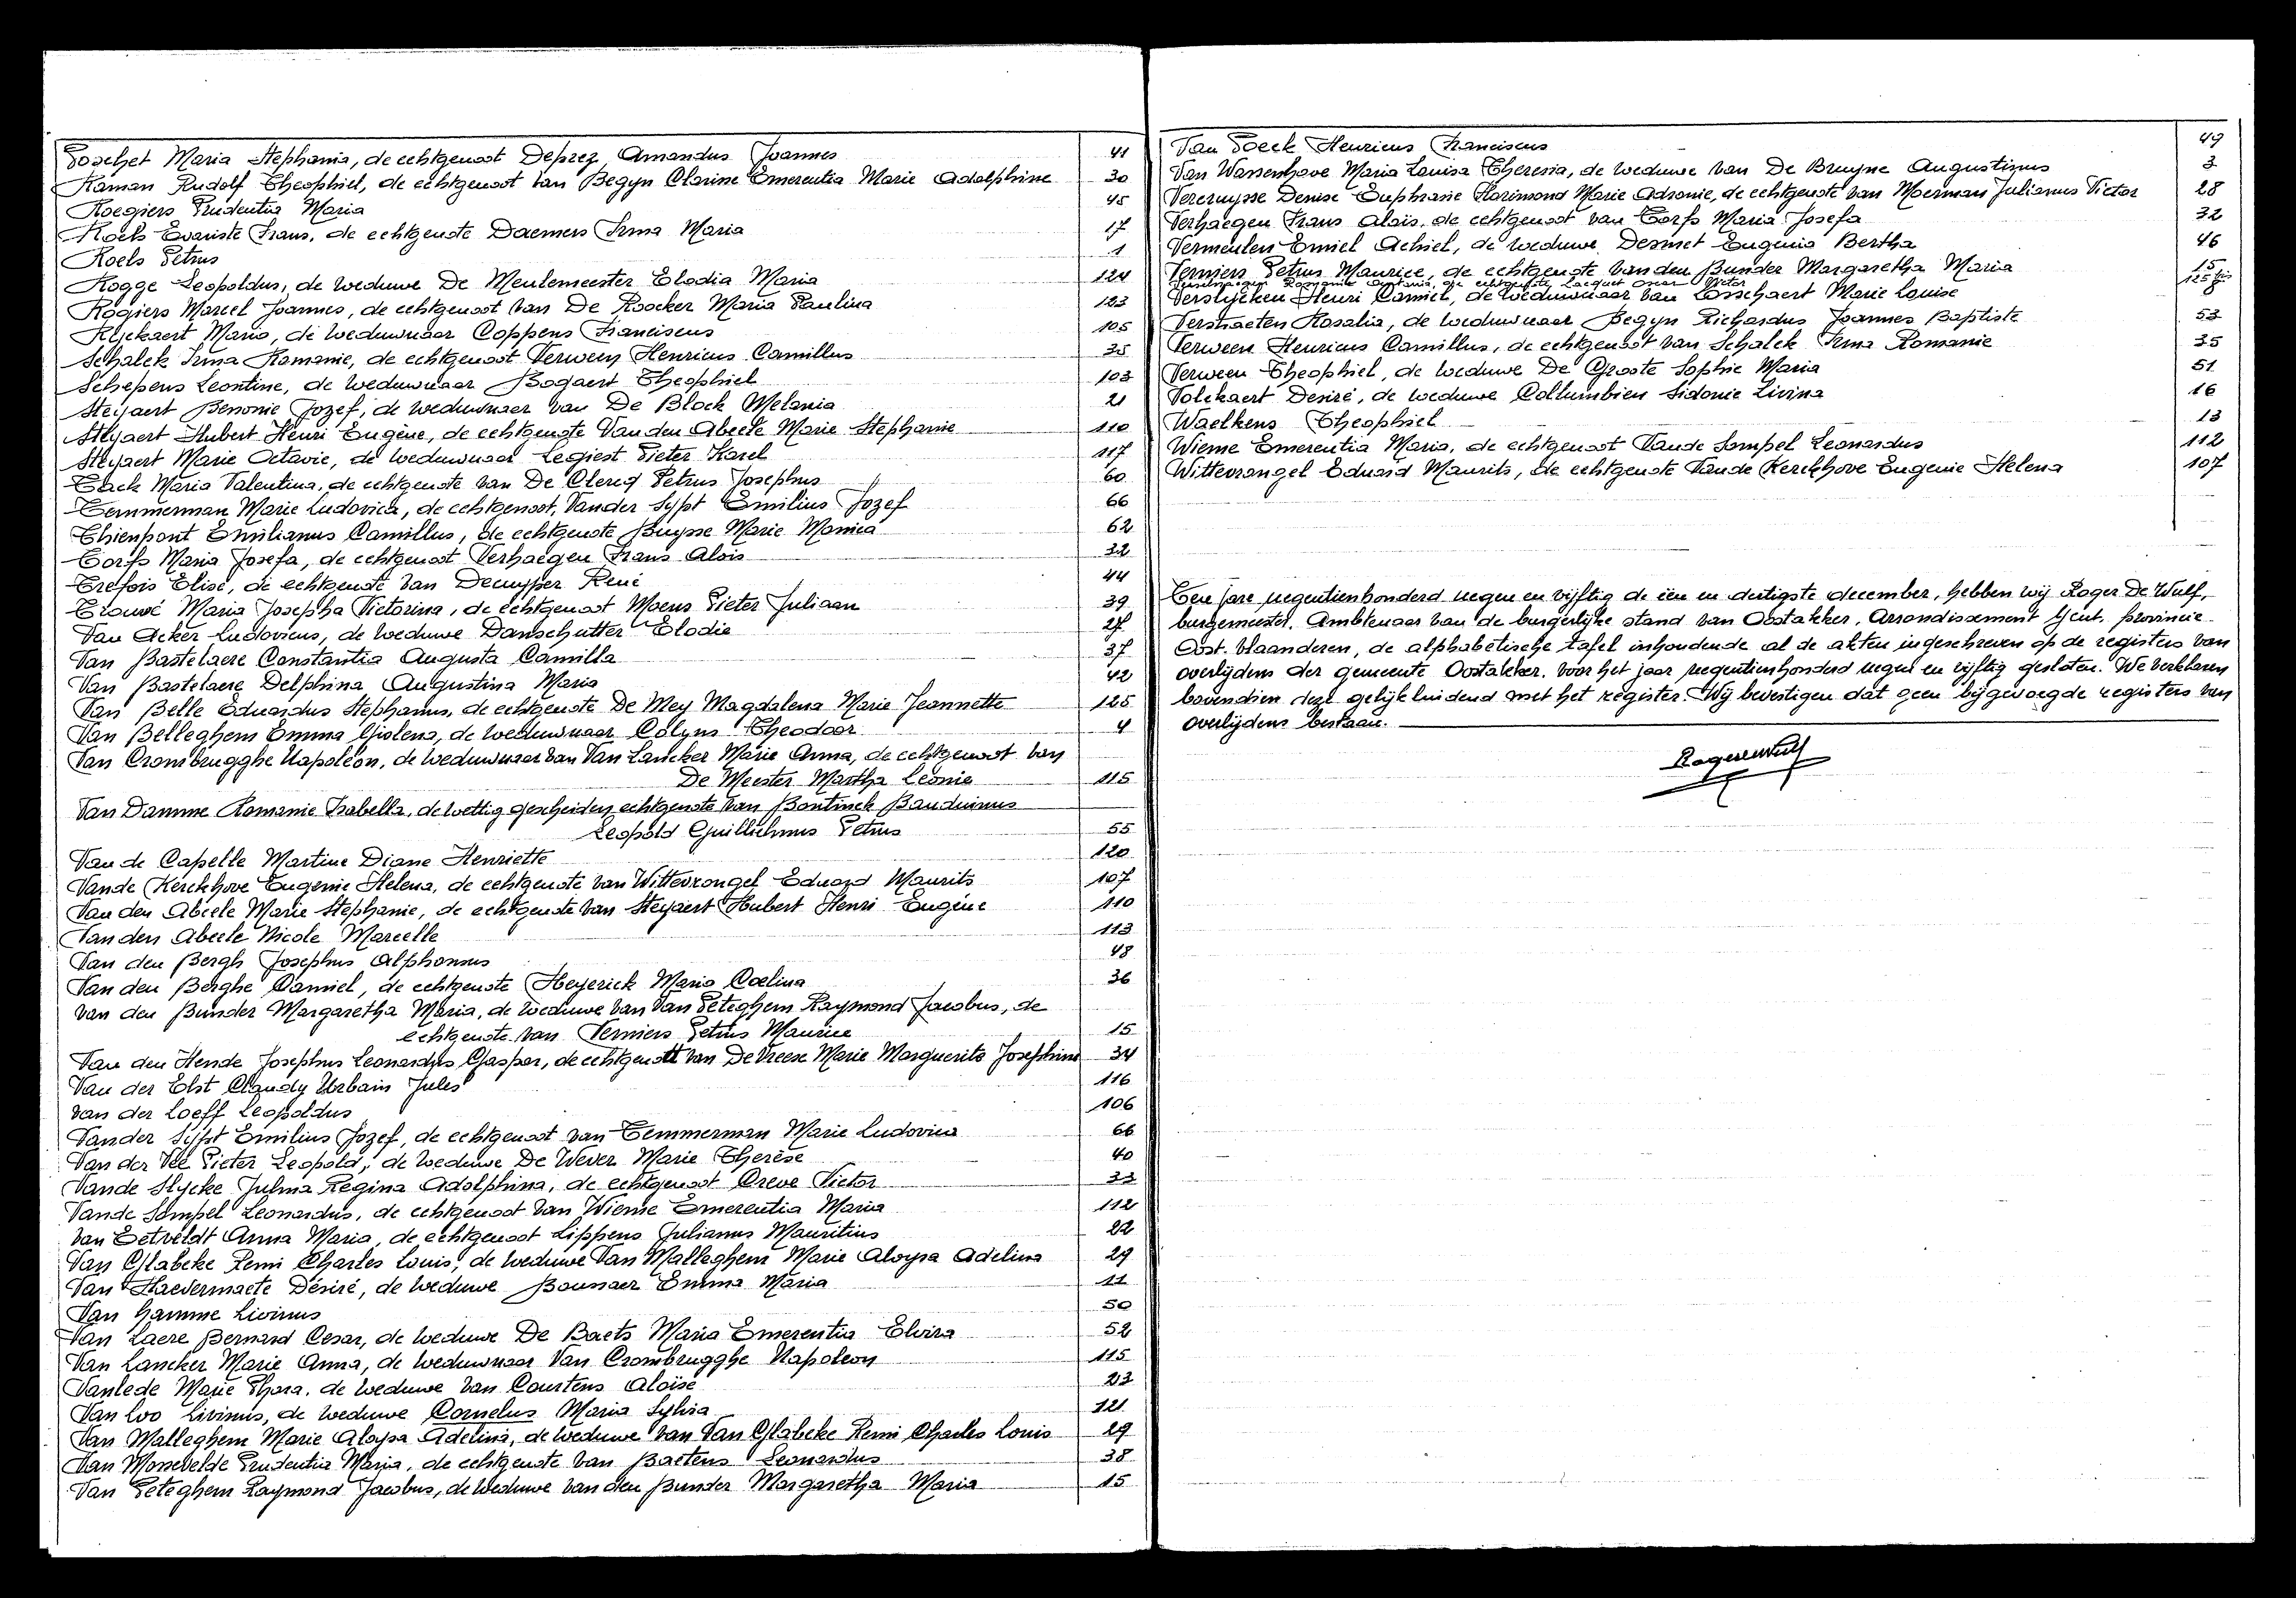 Poschet Maria Stephania, de echtgenoot Deprez Amandus Joannes 41
Raman Rudolf Theophiel, de echtgenoot van Begyn Clarine Emerentia Marie Adolphine 30
Roegiers Prudentia Maria 45
Roels Evariste Frans, de echtgenote Daemers Irma Maria 17
Roels Petrus 1
Rogge Leopoldus, de weduwe De Meulemeester Elodia Maria 124
Rogiers Marcel Joannes, de echtgenoot van De Roocker Maria Paulina 123
Ryckaert Maria, de weduwnaar Coppens Franciscus 105
Schalck Irma Romanie, de echtgenoot Verween Henricus Camillus 35
Schepens Leontine, de weduwnaar Bogaert Theophiel 103
Steyaert Benonie Jozef, de weduwnaer van De Block Melania 21
Steyaert Hubert Henri Eugène, de echtgenote Van den Abeele Marie Stephanie 110
Steyaert Marie Octavie, de weduwnaar Legiest Pieter Karel 117
Tack Maria Valentina, de echtgenote van De Clercq Petrus Josephus 60
Temmerman Marie Ludovica, de echtgenoot Vander Sypt Emilius Jozef 66
Thienpont Emilianus Camillus, de echtgenote Buysse Marie Monica 62
Torfs Maria Josefa, de echtgenoot Verhaegen Frans Alois 32
Trefois Elise, de echtgenote van Decuyper René 44
Trouvé Maria Josepha Victorina, de echtgenoot Moens Pieter Juliaan 39
Van Acker Ludovicus, de weduwe Danschutter Elodie 27
Van Bastelaere Constantia Augusta Camilla 37
Van Bastelaere Delphina Augustina Maria 42
Van Belle Eduardus Stephanus, de echtgenote De Mey Magdalena Marie Jeannette 125
Van Belleghem Emma Gislena, de weduwnaar Colyns Theodoor 4
Van Crombrugghe Napoléon, de weduwnaar van Van Lancker Marie Anna, de echtgenoot van
De Meester Martha Leonie 115
Van Damme Romanie Isabella, de wettig gescheiden echtgenote van Bontinck Bauduinus
Leopold Guillielmus Petrus 55
Van de Capelle Martine Diane Henriette 120
Vande Kerckhove Eugenie Helena, de echtgenote van Wittevrongel Eduard Maurits 107
Van den Abeele Marie Stephanie, de echtgenote van Steyaert Hubert Henri Eugène 110
Van den Abeele Nicole Marcelle 113
Van den Bergh Josephus Alphonsus 48
Van den Berghe Camiel, de echtgenote Heyerick Maria Coelina 36
van den Bunder Margaretha Maria, de weduwe van Van Peteghem Raymond Jacobus, de
echtgenote van Verniers Petrus Maurice 15
Van den Hende Josephus Leonardus Gaspar, de echtgenoot van De Vreese Marie Marguerite Josephine 34
Van der Elst Claudy Urbain Jules 116
van der Loeff Leopoldus 106
Vander Sypt Emilius Jozef, de echtgenoot van Temmerman Marie Ludovica 66
Van der Vee Pieter Leopold, de weduwe De Wever Marie Therèse 40
Vande Slycke Julma Regina Adolphina, de echtgenoot Creve Victor 33
Vande Sompel Leonardus, de echtgenoot van Wieme Emerentia Maria 112
van Eetveldt Anna Maria, de echtgenoot Lippens Julianus Mauritius 22
Van Glabeke Remi Charles Louis, de weduwe Van Malleghem Marie Aloysa Adelina 29
Van Haevermaete Désiré, de weduwe Bounaer Emma Maria 11
Van hamme Livinus 50
Van Laere Bernard Cesar, de weduwe De Baets Maria Emerentia Elvira 52
Van Lancker Marie Anna, de weduwnaar Van Crombrugghe Napoleon 115
Vanlede Marie Phara, de weduwe van Courtens Aloïse 23
Van Loo Livinus, de weduwe Cornelus Maria Sylvia 121
Van Malleghem Marie Aloysa Adelina, de weduwe van Van Glabeke Remi Charles Louis 29
Van Mossevelde Prudentia Maria, de echtgenote van Baetens Leonardus 38
Van Peteghem Raymond Jacobus, de weduwe van den Bunder Margaretha Maria 15
Van Poeck Henricus Franciscus 49
Van Wassenhove Maria Louisa Theresia, de weduwe van De Bruyne Augustinus 3
Vercruysse Denise Euphrasie Florimond Marie Adronie, de echtgenote van Moerman Julianus Victor 28
Verhaegen Frans Alois, de echtgenoot van Torfs Maria Josefa 32
Vermeulen Emiel Achiel, de weduwe Desmet Eugenia Bertha 46
Verniers Petrus Maurice, de echtgenote van den Bunder Margaretha Maria 15
Romanie de echtgenote Oscar 125 bis
Verslycken Henri Camiel, de weduwnaar van Cosschaert Marie Louise
Verstraeten Rosalia, de weduwnaar Begyn Richardus Joannes Baptiste 53
Verween Henricus Camillus, de echtgenoot van Schalck Irma Romanie 35
Verween Theophiel, de weduwe De Groote Sophie Maria 51
Volckaert Desiré, de weduwe Collumbien Sidonie Livina 16
Waelkens Theophiel 13
Wieme Emerentia Maria, de echtgenoot Vande Sompel Leonardus 112
Wittevrongel Eduard Maurits, de echtgenote Vande Kerckhove Eugenie Helena 107
Ten jare negentienhonderd negen en vijftig de één en dertigste december, hebben wij Roger De Wulf,
burgemeester, Ambtenaar van de burgerlijke stand van Oostakker, Arrondissement Gent, provincie
Oost-Vlaanderen, de alphabetische tafel inhoudende al de akten ingeschreven op de registers van
overlijdens der gemeente Oostakker, voor het jaar negentienhonderd negen en vijftig gesloten. We verklaren
bovendien deze gelijkluidend met het register. Wij bevestigen dat geen bijgevoegde registers van
overlijdens bestaan.